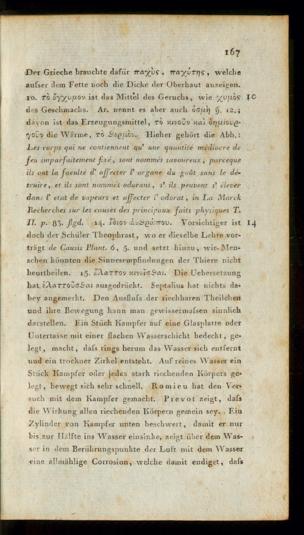 167
Der Grieche brauchte dafür παχὺς, παχύτης, welche
aufser dem Fette noch die Dicke der Oberhaut anzeigen.
10. τὸ ἔγχυμον ist das Mittel des Geruchs, wie χυμὸς 10
des Geschmacks. Ar. nennt es aber auch ὀσμὴ 9, 12.;
davon ist das Erzeugungsmittel, τὸ κινοῦν καὶ δημιουρ-
γοῦν die Wärme, τὸ θερμόν. Hieher gehört die Abh.:
Les corps qui ne contiennent qu' une quantité médiocre de
feu imparfaitement fixé, sont nommés savoureux, parceque
ils ont la faculté d' affecter l' organe du goût sans le dé-
truire, et ils sont nommés odorans, s' ils peuvent s' élever
dans l' etat de vapeurs et affecter l' odorat, in La Marck
Recherches sur les causes des principaux faits physiques T.
II. p. 83. flgd. 14. ἴδιον ἀνθρώπου. Vorsichtiger ist 14
doch der Schüler Theophrast, wo er dieselbe Lehre vor-
trägt de Causis Plant. 6, 5. und setzt hinzu, wir Men-
schen könnten die Sinnesempfindungen der Thiere nicht
beurtheilen. 15. ἔλαττον κινεῖσθαι. Die Uebersetzung
hat ἐλαττοῦσθαι ausgedrückt. Septalius hat nichts da-
bey angemerkt. Den Ausfluſs der riechbaren Theilchen
und ihre Bewegung kann man gewissermaſsen sinnlich
darstellen. Ein Stück Kampfer auf eine Glasplatte oder
Untertasse mit einer flachen Wasserschicht bedeckt, ge-
legt, macht, daſs rings herum das Wasser sich entfernt
und ein trockner Zirkel entsteht. Auf reines Wasser ein
Stück Kampfer oder jedes stark riechenden Körpers ge-
legt, bewegt sich sehr schnell. Romieu hat den Ver-
such mit dem Kampfer gemacht. Prevot zeigt, daſs
die Wirkung allen riechenden Körpern gemein sey. Ein
Zylinder von Kampfer unten beschwert, damit er nur
bis zur Hälfte ins Wasser einsinke, zeigt über dem Was-
ser in dem Berührungspunkte der Luft mit dem Wasser
eine allmählige Corrosion, welche damit endiget, daſs